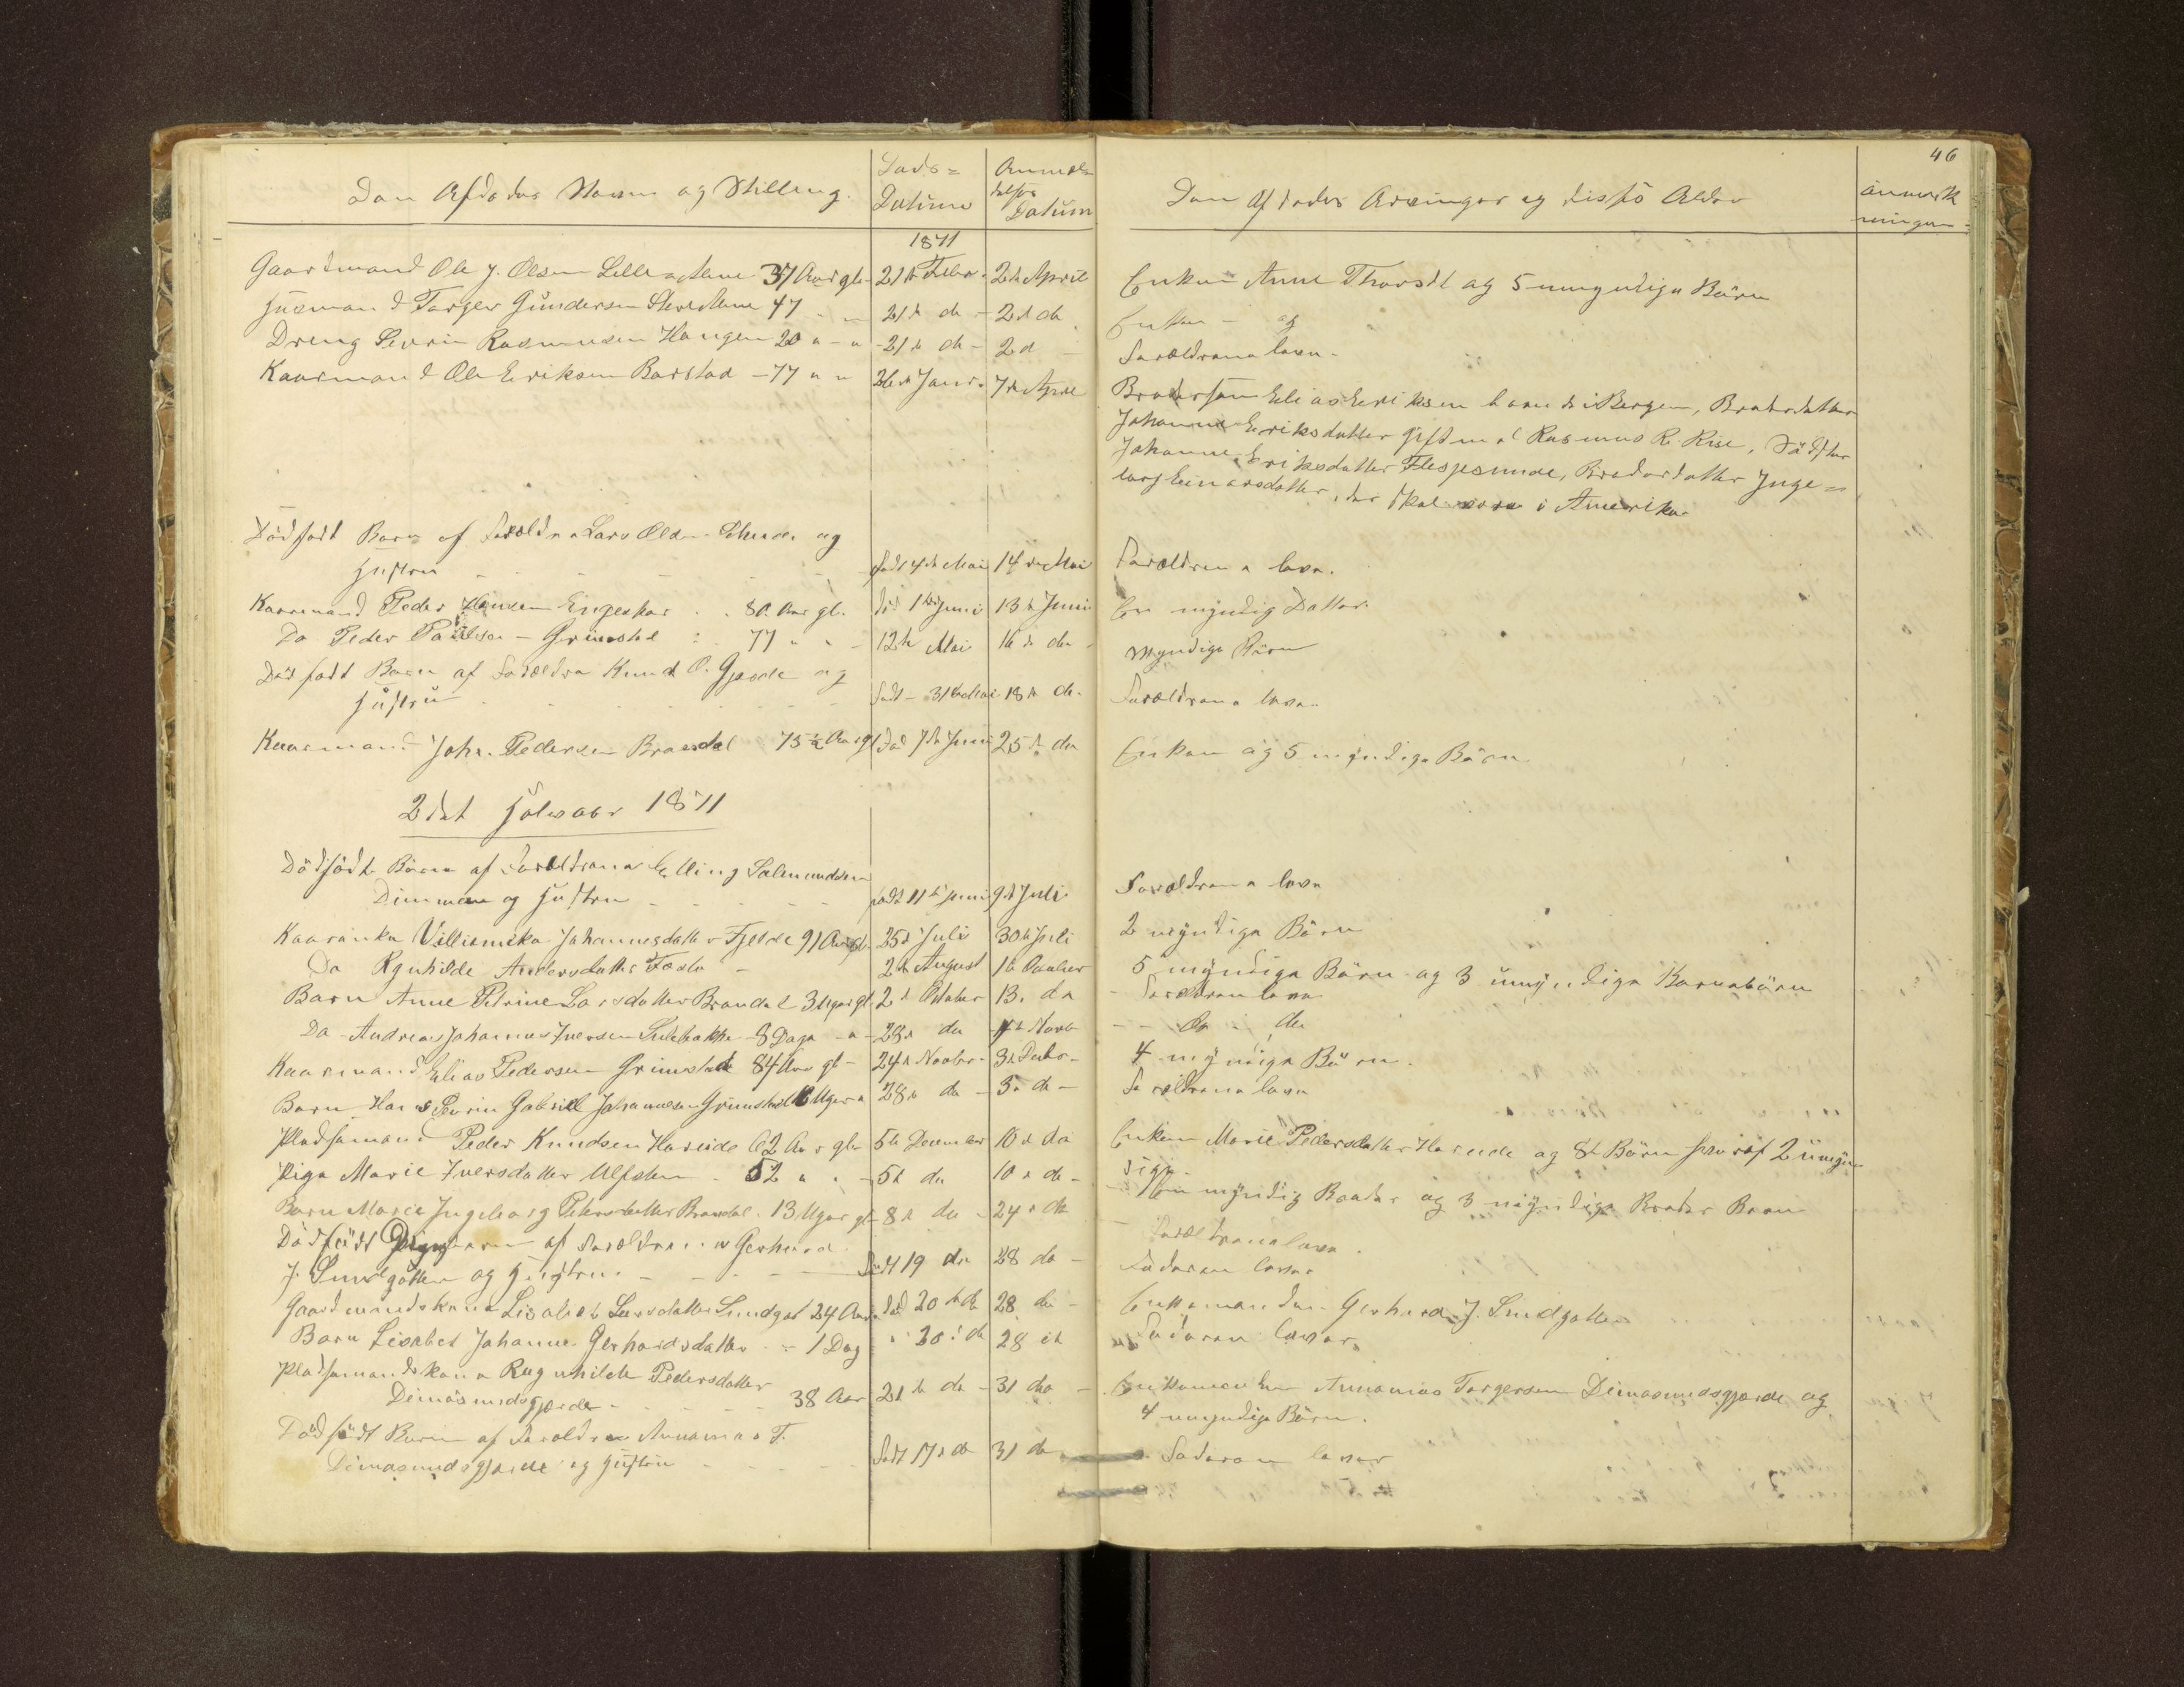 46
Den Afdødes Navn og Stilling.
Døds=
Datum
Anmel=
delses
Datum
Den Afdødes Arvinger og disses Alder
Anmærk
ninger.
1871
Gaardmand Ole J. Olsen Lille Alme 37 Aar gl. 21de Febr. 2de April Enken Anne Thorsdt og 5 umyndige Børn
Husmand Torger Gundersen 47 " " 21de do - 2de do Enken - og
Dreng Sevrin Rasmussen Haugen 20 " - " - 21de do - 2d - Forældrene lever.
Kaarmand Ole Eriksen Barstad - 77 " " 26de Janr. 7de April Brodersøn Elias Eriksen boende i Bergen, Broderdatter
Johanne Eriksdatter gift med Rasmus R. Rise, Søster
Johanne Eriksdatter Flesjesunde, Broderdatter Inge=
borg Einarsdatter, der skal være i Amerika
Dødfødt Barn af Forældrene Lars Olsen og
Hustru - - - født 4de Mai 14de Mai Forældrene lever.
Kaarmand Peder Hansen Engeskar . . 80 Aar gl. død 1ste Juni 13de Juni En myndig Datter
Do Peder Paulsen - Grimstad : 77 " " - 12te Mai 16de do - Myndige Børn
Dødfødt Barn af Forældre Knud O. Gjerde og
Hustru . . . . født - 31te Mai 18de do. Forældrene lever.
Kaarmand Johs. Pedersen Brandal 75½ Aar gl. død 7de Juni 25de do Enken og 5 myndige Børn
2det Halvaar 1871
Dødfødt Barn af Forældrene Elling Salamundsen
Dimmen og Hustru - - - født 11te Juni 9de Juli Forældrene lever
Kaarenke Villiamika Johannesdatter Fjelde 91 Aar gl. 25de Juli 30te Juli 2 myndige Børn
Do Rgnhilde Andersdatter - 2de August 1te 5 myndige Børn og 3 umyndige Barnebørn
Barn Anne Petrine Larsdatter Brandal 3 Uger gl. 2de Oktober 13. do - Forældrene lever
Do - Andreas Johannes Iversen - 8 Dage - " - 28de do Novb - - Do - do
Kaarmand Elias Pedersen Grimstad 84 Aar gl - 24de Novbr. 3de Decbr - 4 myndige Børn.
Barn Hans Sevrin Gabriel Johannesen Grimstad 6 Uger " 28de do - 3. do - Forældrene lever
Pladsemand Peder Knudsen Hareide 62 Aar gl. 5te December 10de do Enken Marie Pedersdatter Hareide og 8te Børn hvoraf 2 umyn
dige.
Pige Marie Iversdatter Ulfsten - 52 " " - 5te do 10de do - - 1 en myndig Broder og 3 myndige Broder Børn
Barn Marie Ingeborg Petersdatter Brandal. 13 Uger gl - 8de do - 24de do - Forældrene lever.
Dødfødt Pigebarn af Forældrene Gerhard
J. Sundgotten og Hustru - - - født 19 do 28 do - Faderen lever
Gaardmandskone Lisabet Larsdatter Sundgot 24 Aar. død 20de do 28 do - Enkemanden Gerhard J. Sundgotten
Barn Lisabet Johanne Gerhardsdatter - 1 Dag " 20. do 28 do Faderen lever
Pladsemandskone Ragnhilde Pedersdatter
Dimasundsgjærde - - - 38 Aar 21de do - 31 do - Enkemanden Annanias Torgersen Dimasundsgjærde og
4 umyndige Børn.
Dødfødt Barn af Forældre Annanias T.
Dimasundsgjærde og Hustru - - - født 17de do 31 do - Faderen lever